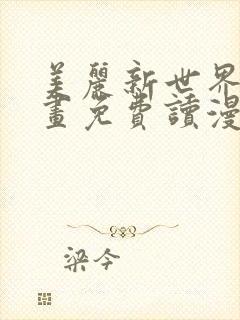 美麗新世界
畫免費讀漫
梁今